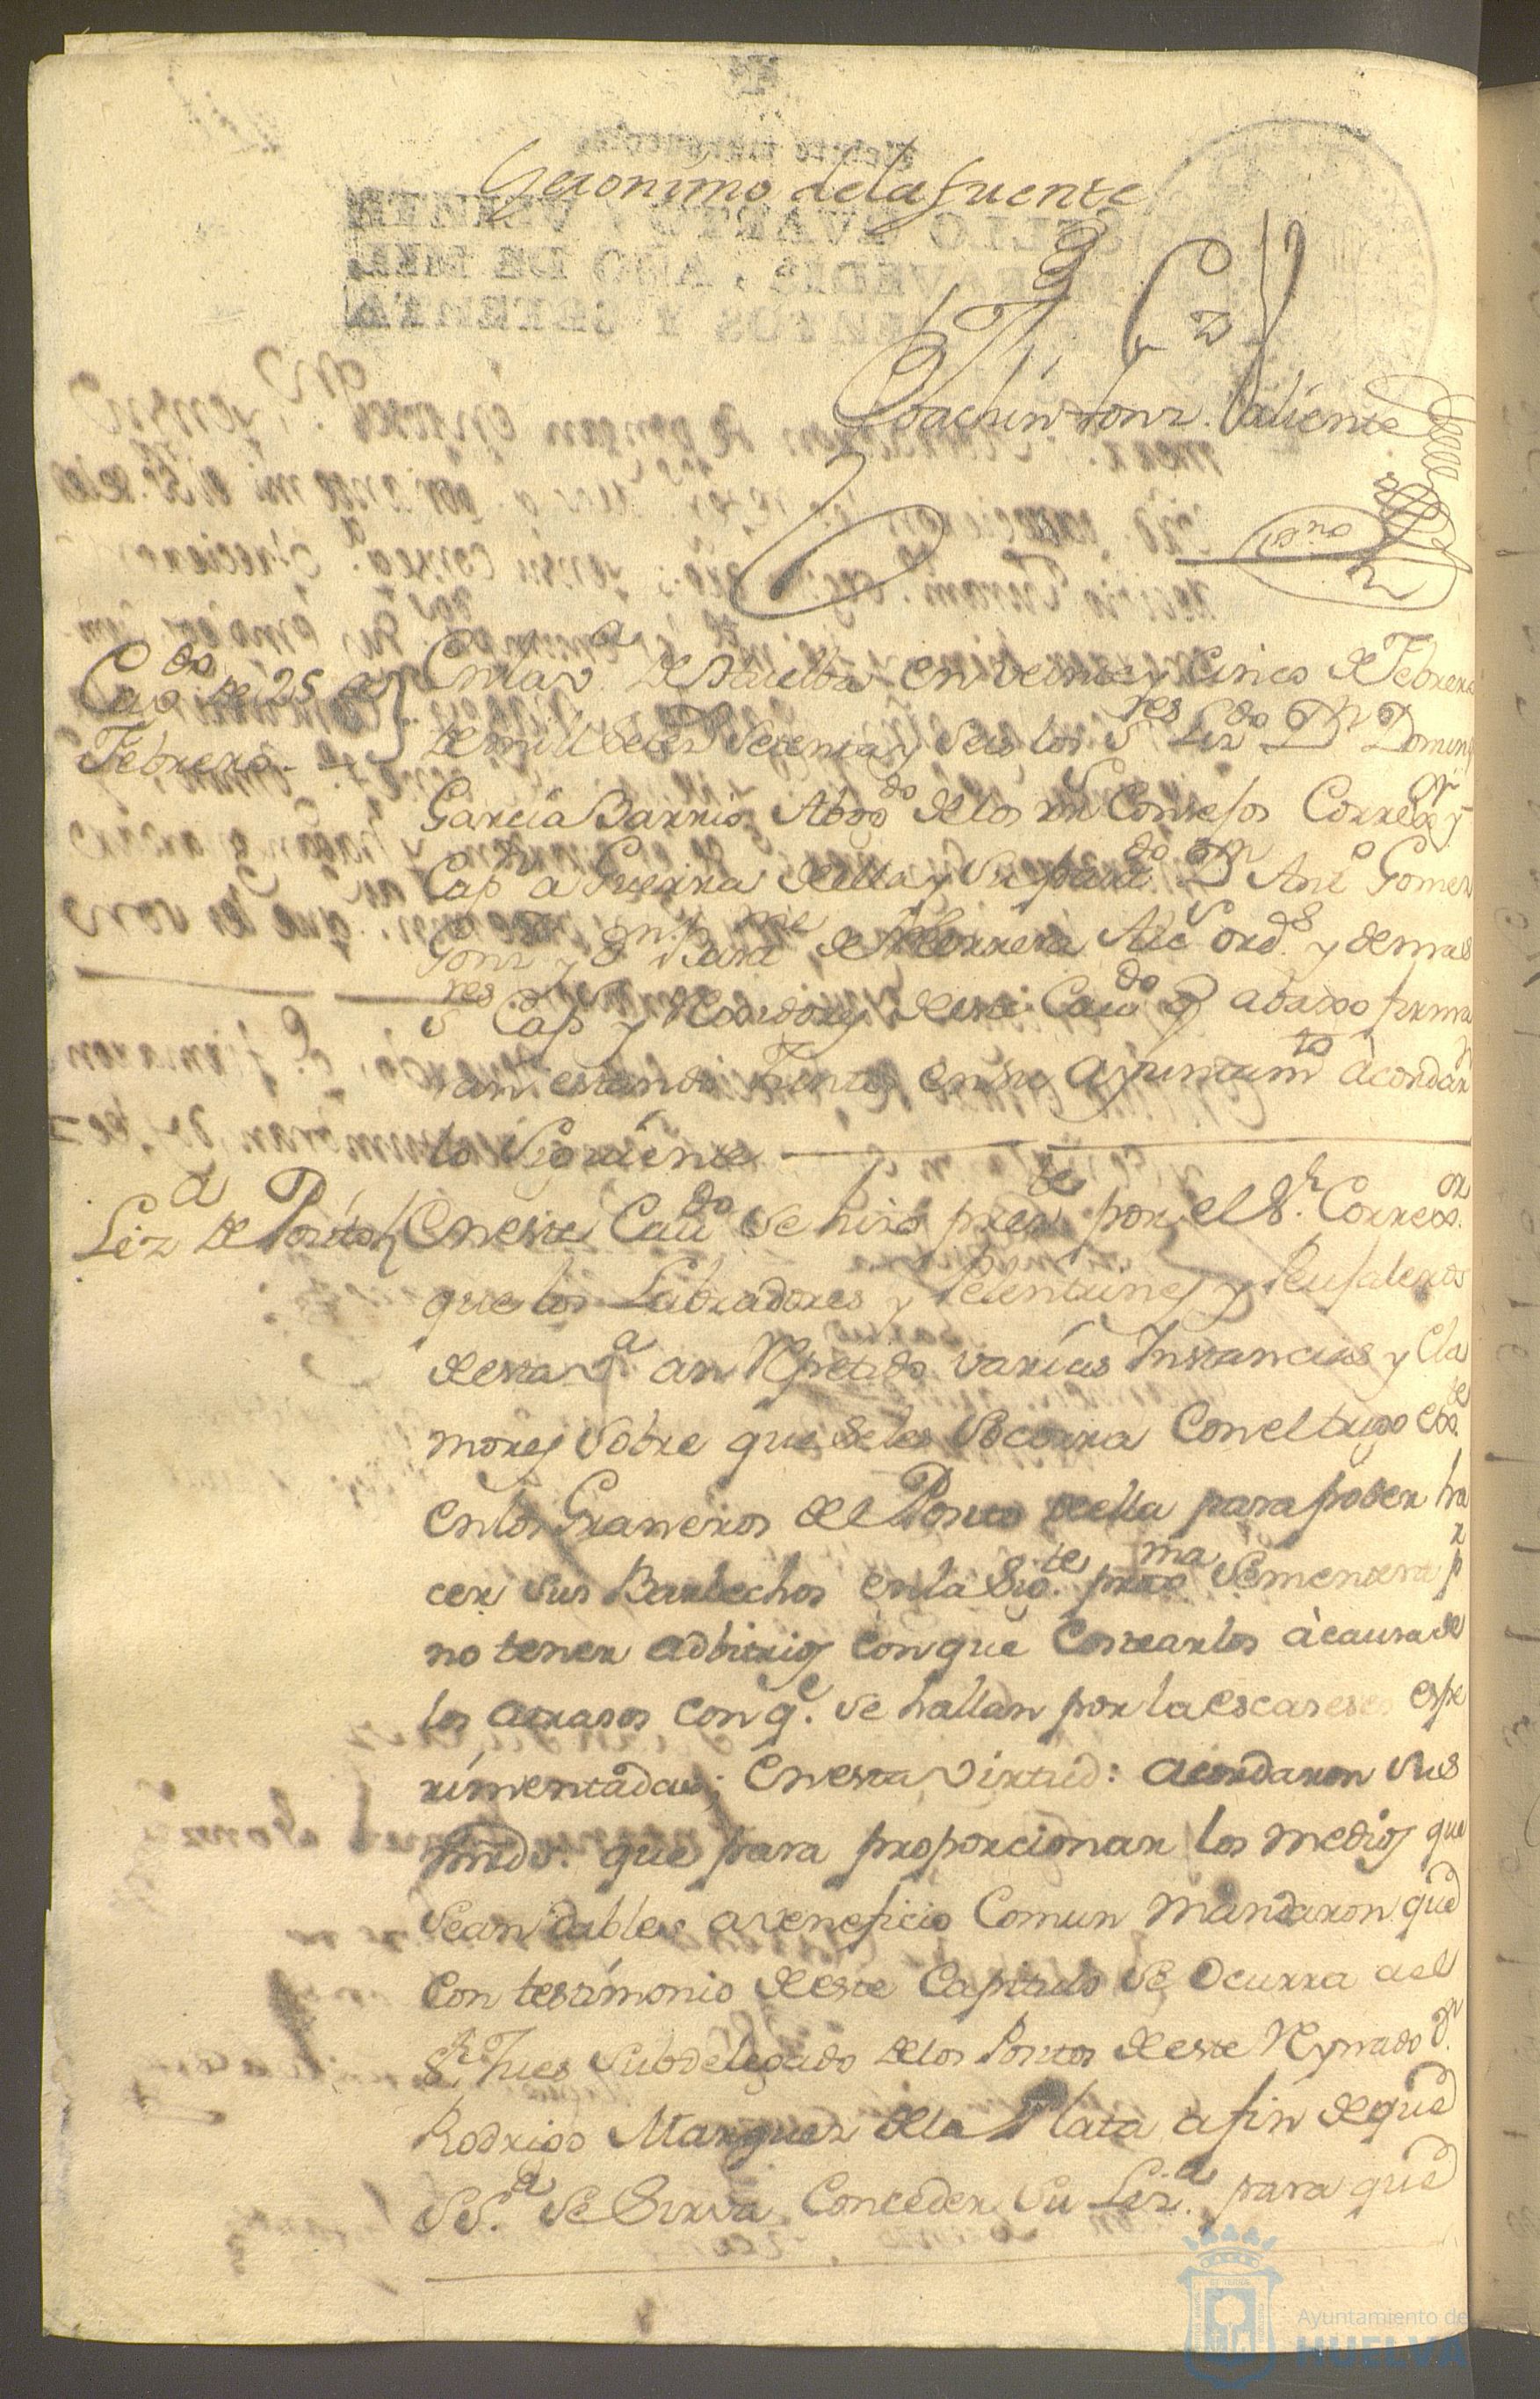 Geronimo de la fuente
Joachin Gonz. Valiente
esno
Cavdo de 25 de
Febrero
En la va de Huelba en veinte y Cinco de Febrero
de mill setesS setenta y seis los Sres Lizdo Dn Domingo
Garcia Barrio Abogdo de los rs Consejos Corregor y
Capn a Guerra de ella y su partdo Dn Anto Gomez
Gonz y Dn Barme de Herrera Alcs ords y demas
Sres Cap y Rexidores deste Cavdo q abaxo firma
ran estando Juntos en su ayuntamto acordarn
lo Siguiente
Liza de Posito
En este Cavdo se hizo preste por el Sr. Corregor
que los Labradores y Pelentrines y Peujaleros
desta va an Repetido varias Instancias y Cla
mores sobre que se les Socorra con el trigo exte
en los Graneros del Posito de ella para poder ha
cer sus Barbechos en la Sigte prxma Sementera pr
no tener adbitrios con que Costearlos à causa de
los atrasos con qe. se hallan por la escaseses espe
rimentadas; En esta virtud: acordaron sus
mrds. que para proporcionar los medios que
sean dables a veneficio Comun mandaron que
con testimonio de este Capitulo se Ocurra a el
Sr. Jues subdelegado de los Positos de este Reynado Dn.
Rodrigo Marquez de la Plata a fin de que
SSa. se Sirva Conceder su Liza. para que
Ayuntamiento de
HUELVA